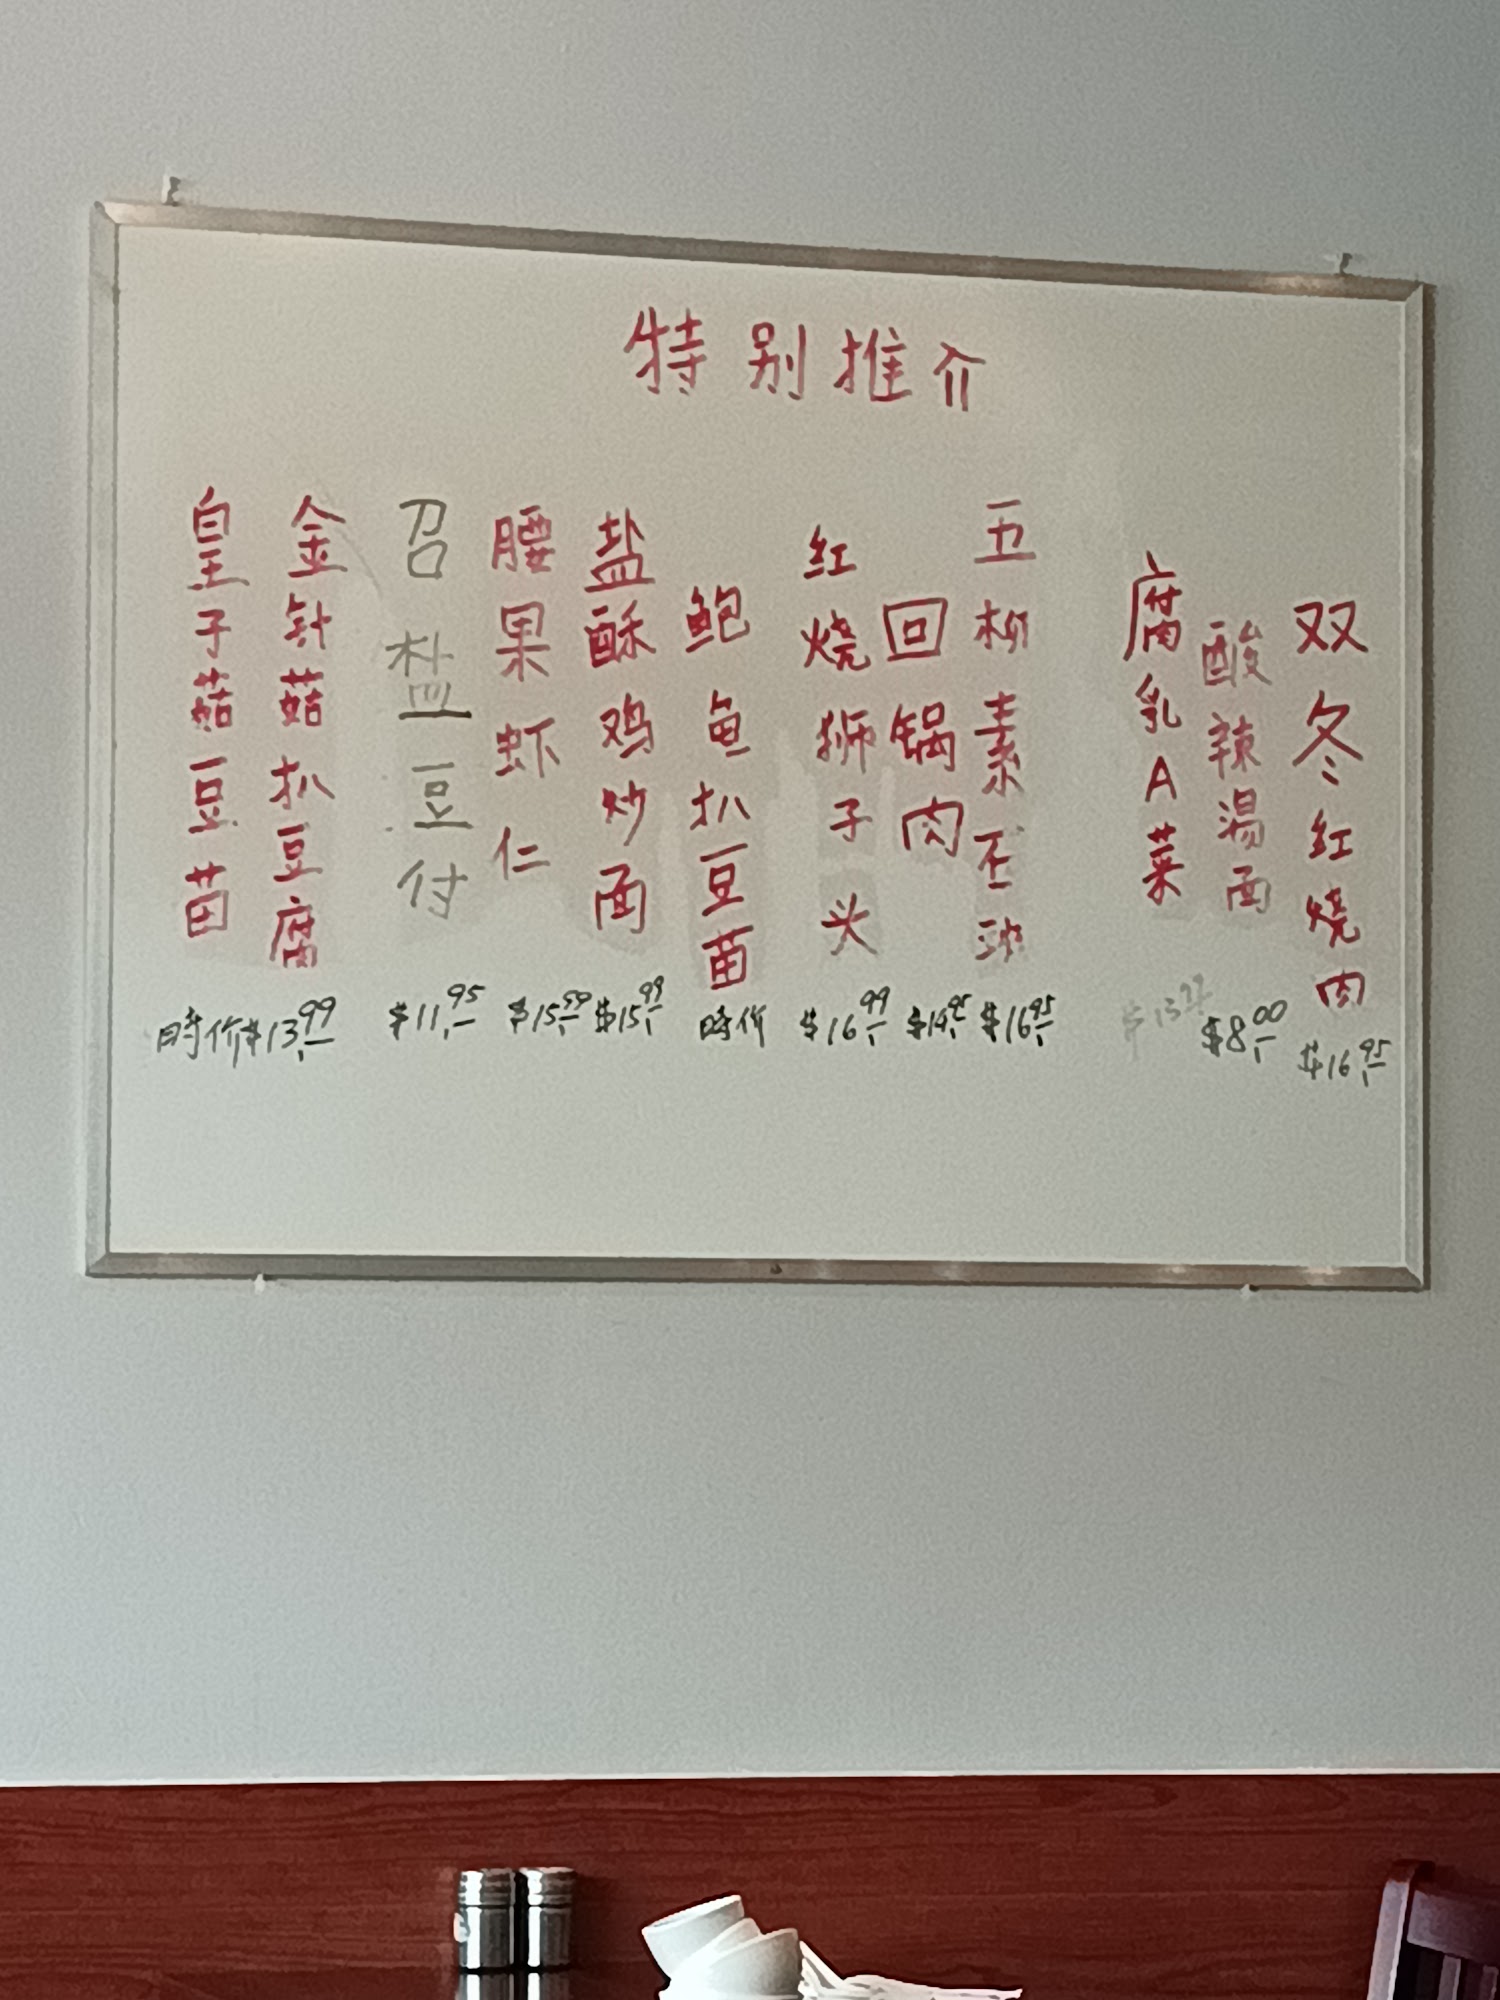 特别推介
皇子菇豆苗
時价
金针菇扒豆腐
$13.99
召盐豆付
$11.95
腰果虾仁
$15.99
盐酥鸡炒面
$15.99
鲍鱼扒豆苗
時价
红烧狮子头
$16.99
回锅肉
$14.95
五柳素
$16.95
腐乳A菜
酸辣湯面
$8.00
双冬红烧肉
$16.95